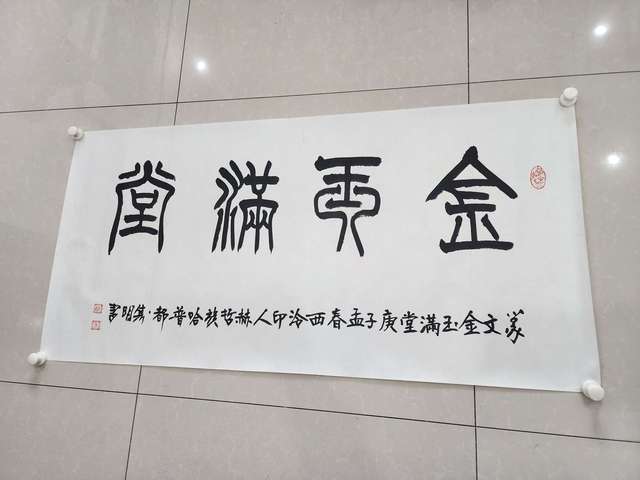 金玉滿堂
篆文金玉滿堂庚子孟春西泠印人赫哲族哈普都·隽明書